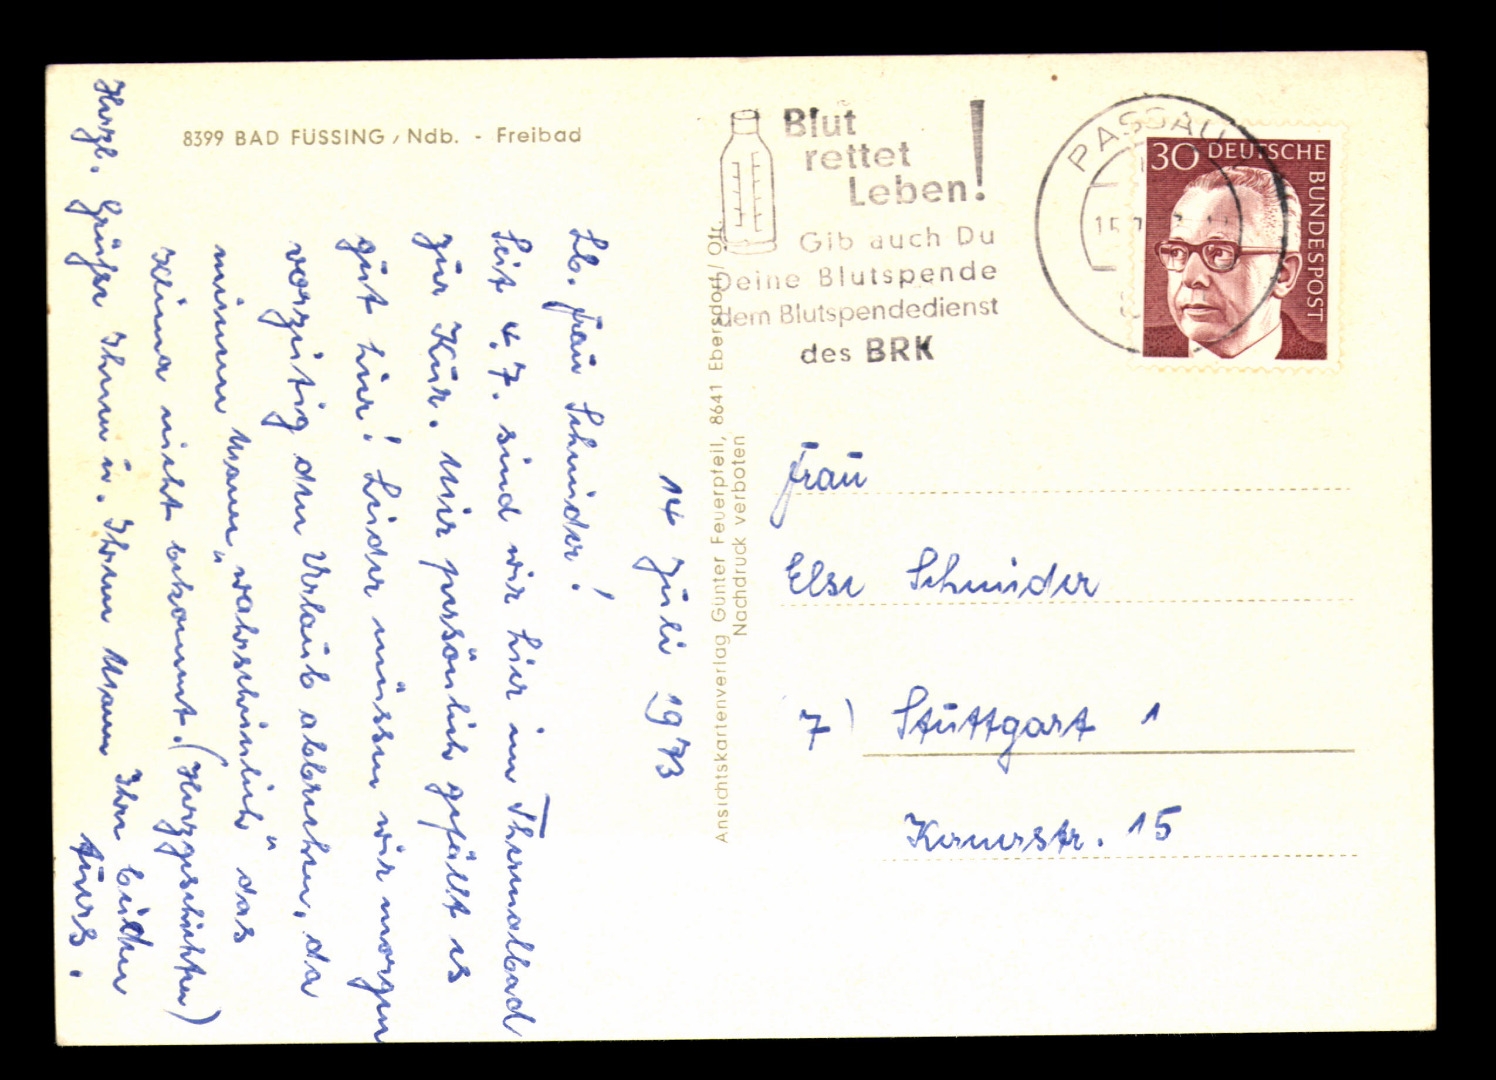 8399 BAD FÜSSING / Ndb. - Freibad
14 Juli 1973
Lb. Frau Schneider!
Seit 4.7. sind wir hier im Thermalbad
zur Kur. Mir persönlich gefällt es
gut hier! Leider müssen wir morgen
vorzeitig den Urlaub abbrechen, da
meinem Mann „wahrscheinlich" das
Klima nicht bekommt. (Herzgeschichten)
Herzl. Grüße Ihnen u. Ihrem Mann Ihre beiden
Ansichtskartenverlag Günter Feuerpfeil, 8641 Ebersdorf / Ofr.
Nachdruck verboten
Blut
rettet
Leben!
Gib auch Du
Deine Blutspende
dem Blutspendedienst
des BRK
PASSAU
30 DEUTSCHE
BUNDESPOST
Frau
Else Schneider
7) Stuttgart 1
Kernerstr. 15